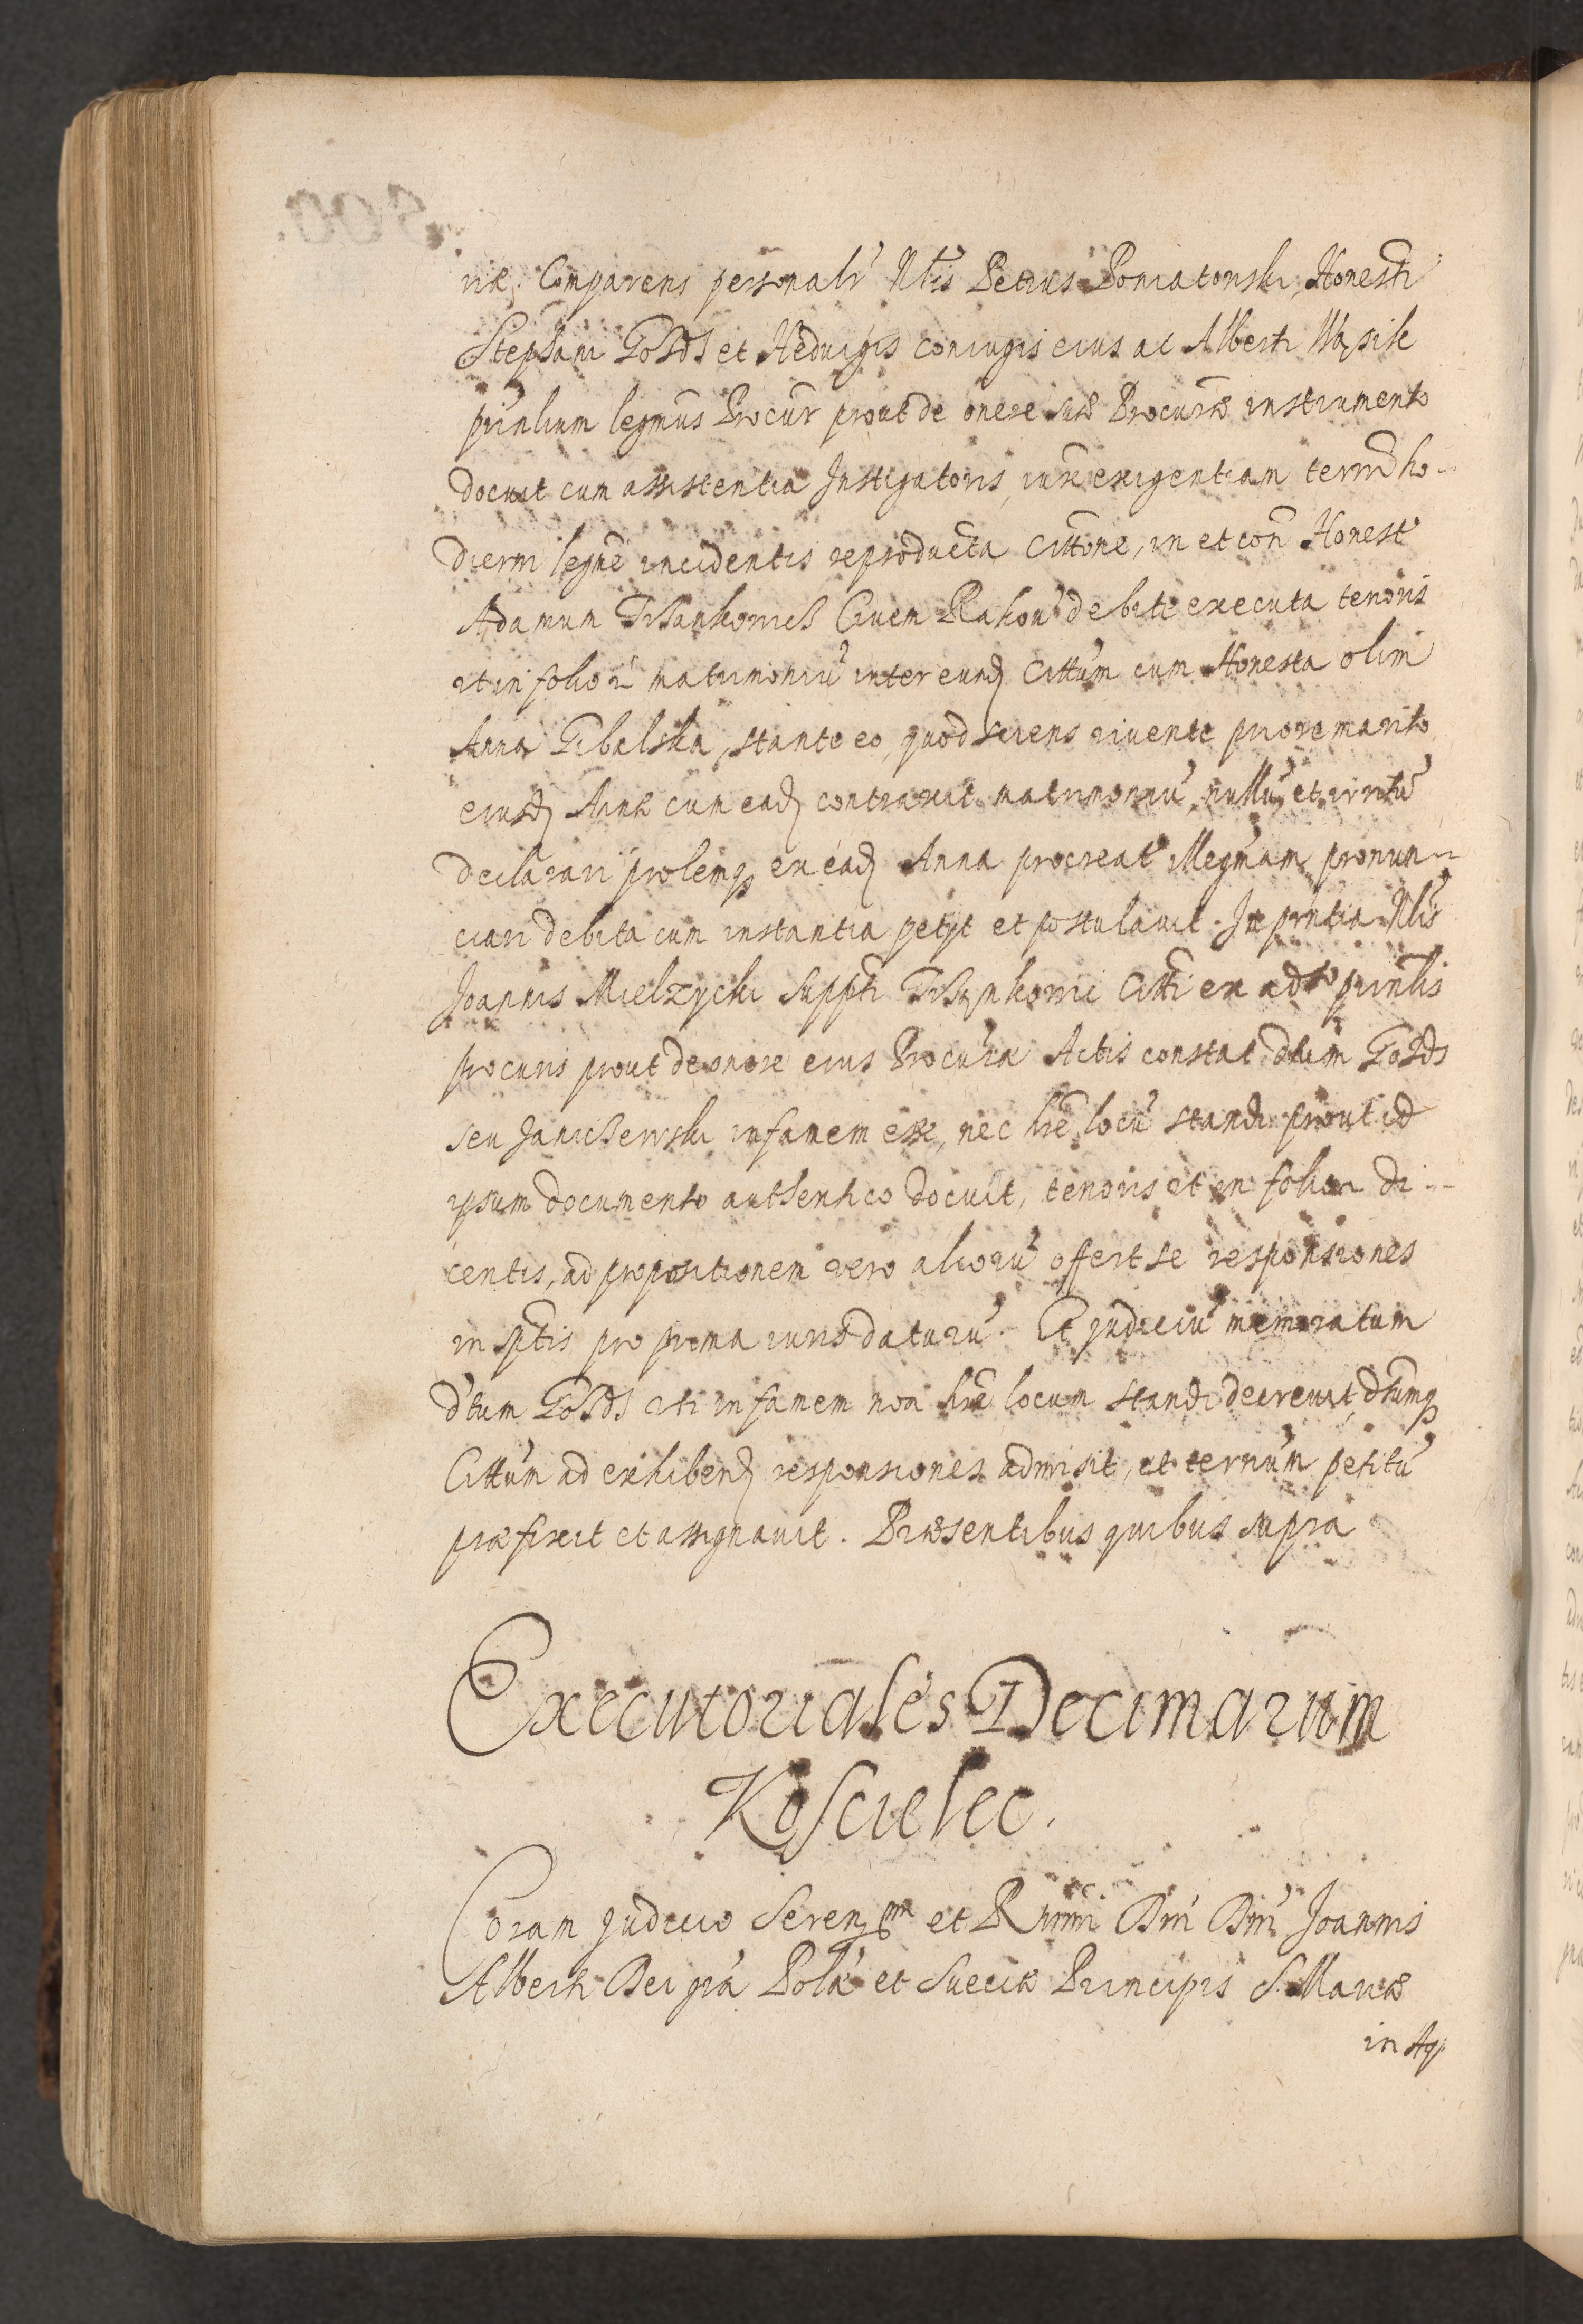 riæ, Comparens personalr Nlis Petrus Poniatonski, Honesti
Stephani Goſds et Hedvigis coniugis eius ac Alberti Wąsik
prinlium legmus Procur prout de onere suæ Procuræ instrumento
docuit cum assistentia Instigatoris, iuxe exigentiam termi ho-
dierni legme incidentis reproducta Cittone, in et con Honest
Adamum Civem debite executa tenoris
ut in folio r matrimoniu inter eund Cittum cum Honesta olim
Anna Gibalska, stante eo, quod sciens vivente priore marito
eiusd Annæ cum ead contraxit matrimoniu, nullu et irritu
declarari prolemq ex ead Anna procreat illegmam pronun-
ciari debita cum instantia petyt et postulavit. In pntia Nlis
Joannis Mielzycki Suppti Citti ex adso prinlis
procuris prout de onere eius Procura Actis constat dtum Goſds
seu Janiszewski infamem esse, nec hre locu standi prout id
ipsum documento authentico docuit, tenoris ut in folio r di-
centis, ad propositionem vero alioru offert se responsiones
in sptis pro prima iuris daturu. Et judiciu memoratum
dtum Goſds uti infamem non hre locum standi decrevit, dtumq
Cittum ad exhibend responsiones admisit, et ternum petitu
præfixit et assignavit. Præsentibus quibus supra
Executoriales Decimarum
Koscielec.
Coram judicio Serenssmi et Rmi Dni Dni Joannis
Alberti Dei gra Pola et Sueciæ Principis S. Mariæ
in Aq